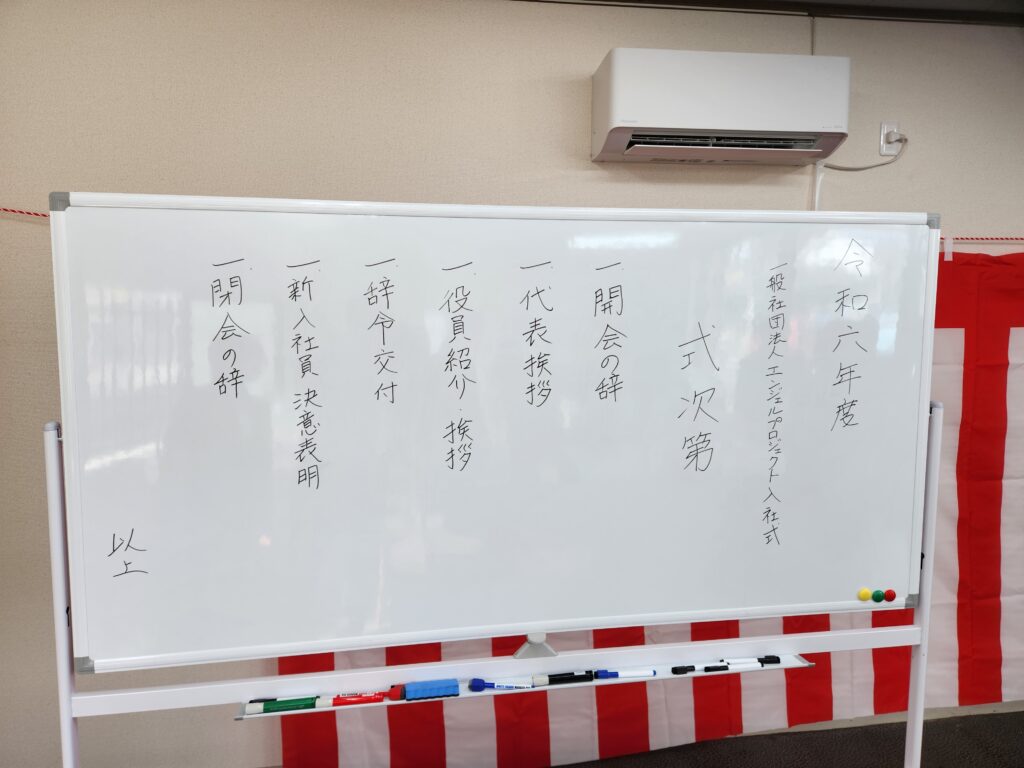 令和六年度
一般社団法人エンジェルプロジェクト入社式
式次第
一、開会の辞
一、代表挨拶
一、役員紹介・挨拶
一、辞令交付
一、新入社員 決意表明
一、閉会の辞
以上